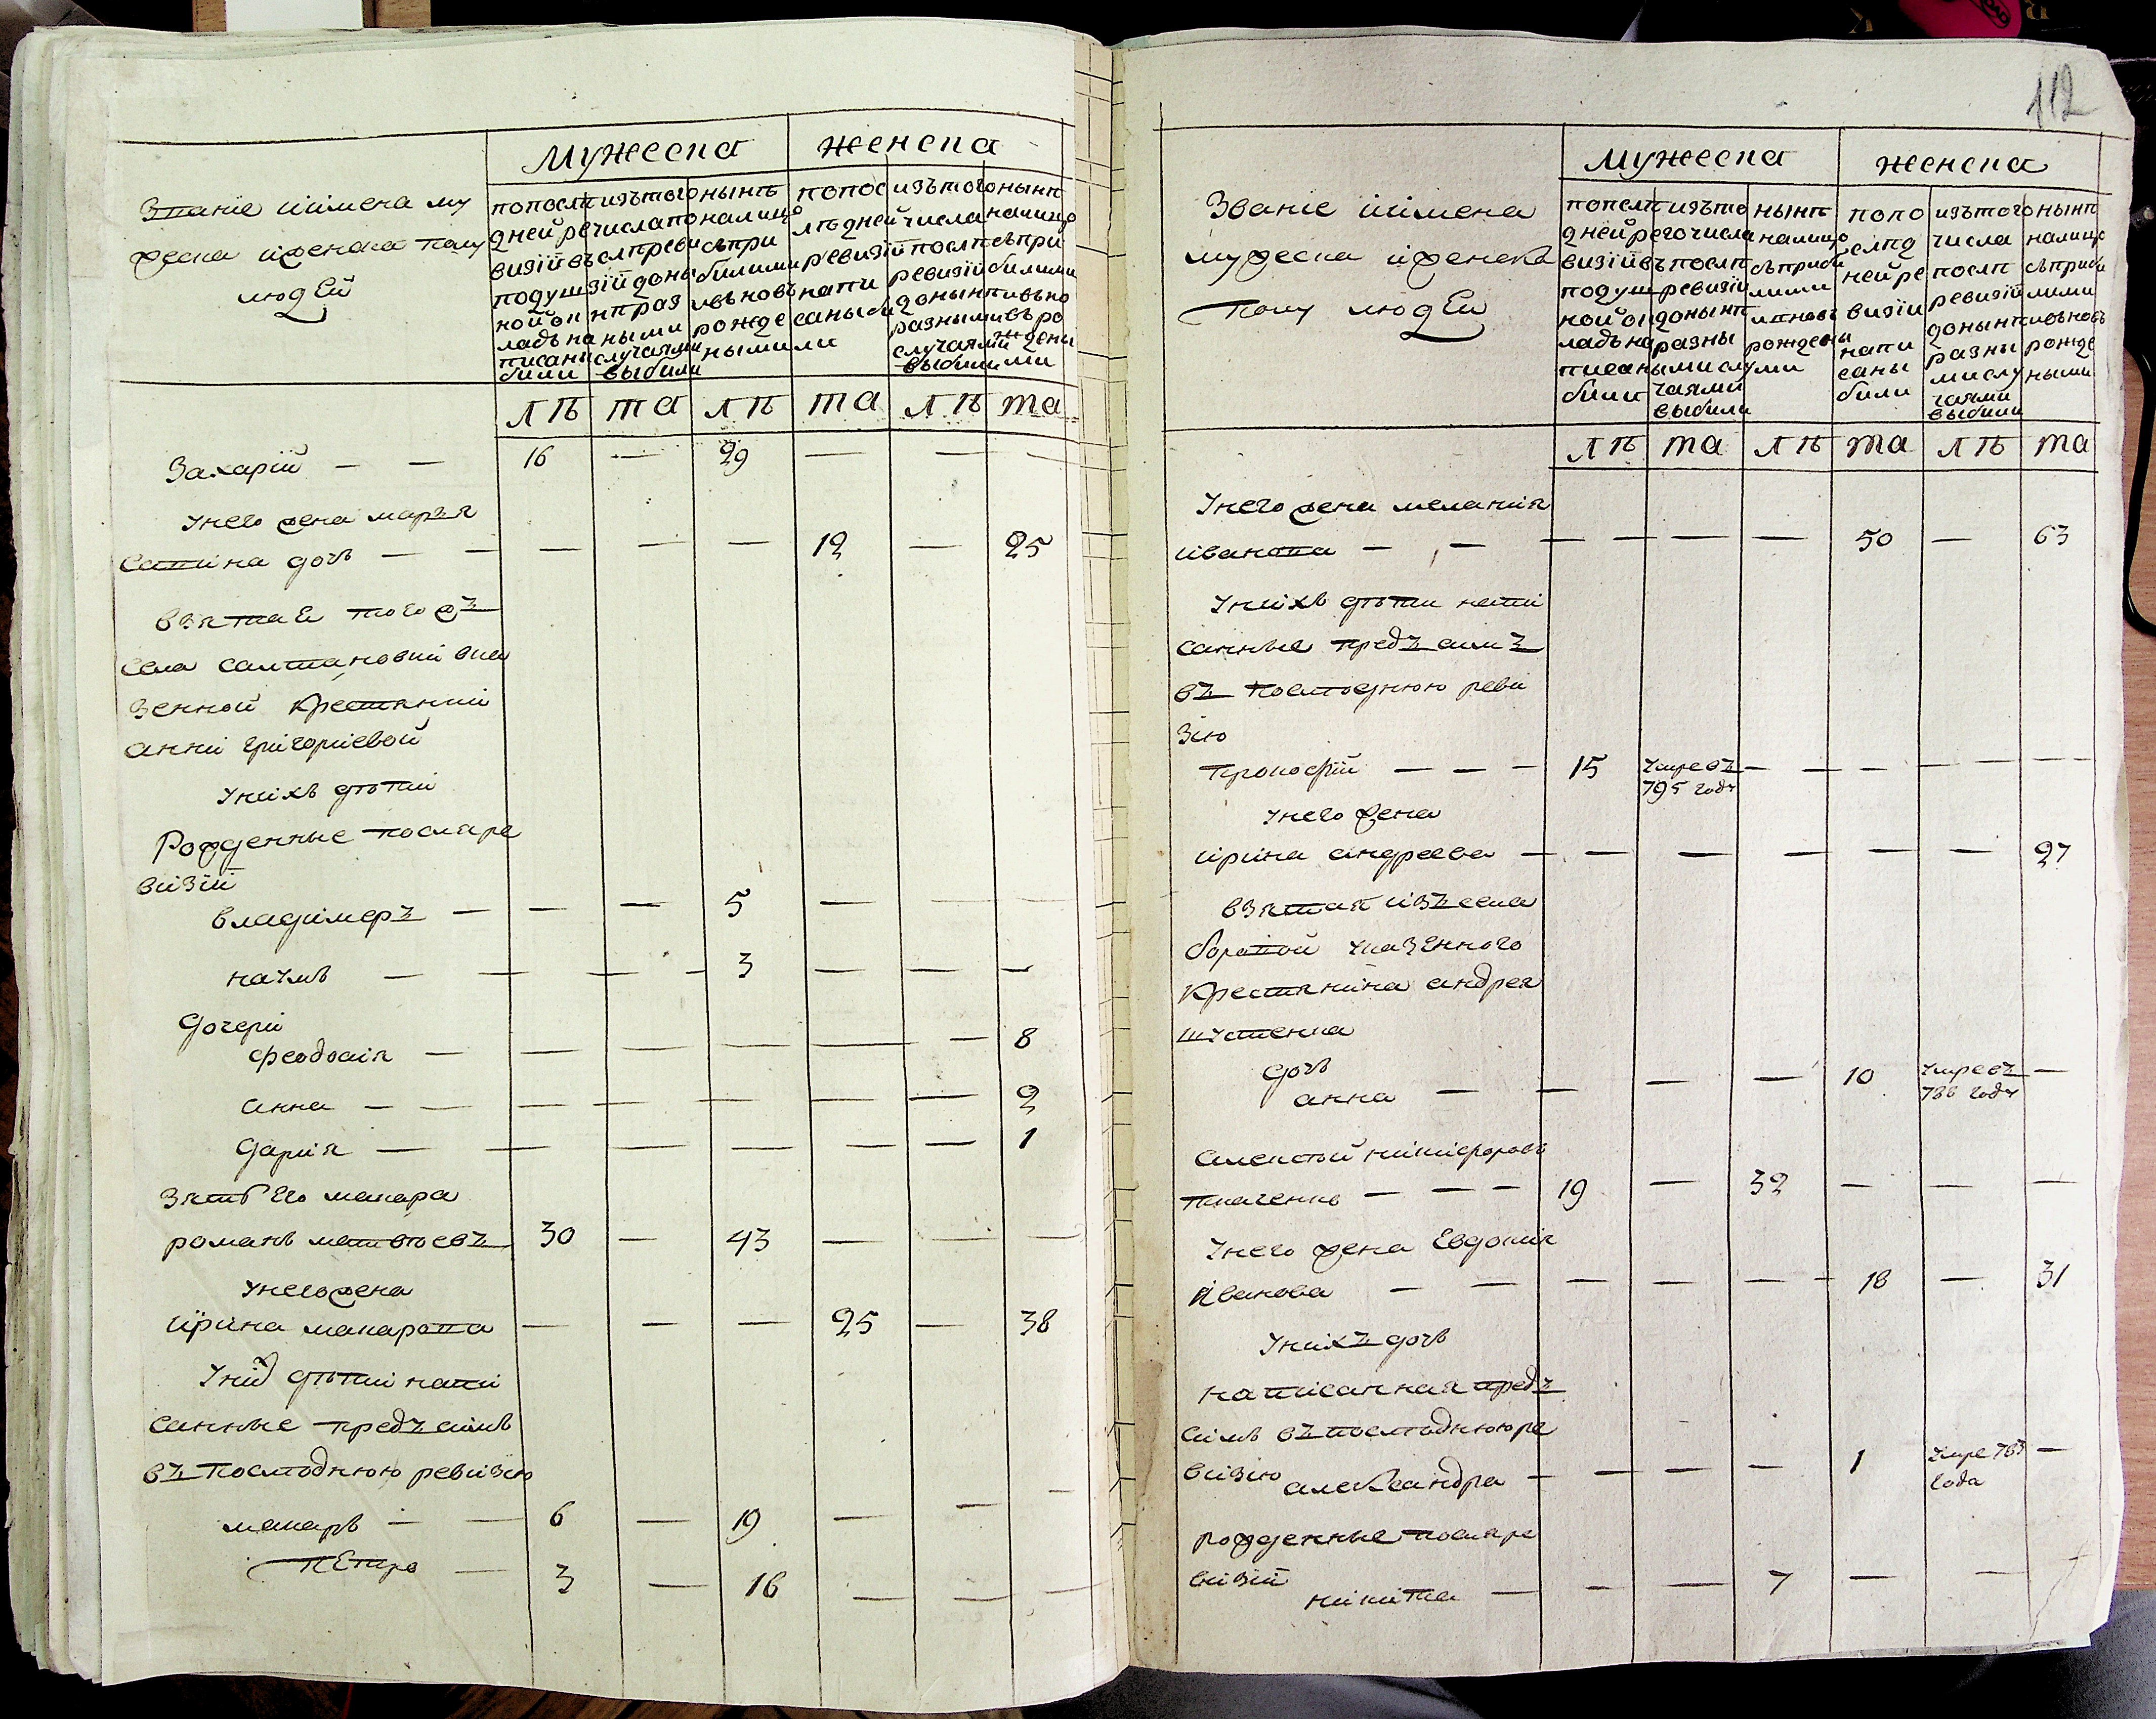 Мужеска
женска
Званіе иимена му
жеска иженска полу
людей
попосл
дней ре
визіи въ
подуш
ной ок
ладъ на
писани
били
изътого
числа по
сл ревизіи
доны
нѣ раз
ными
случаями
выбили
нынѣ
налицо
съ при
билими
ивъновъ
рожде
ными
попос
лѣдней
ревизіи
напи
саны би
ли
изътого
числа
послѣ
ревизіи
донынѣ
разными
случаями
выбили
нынѣ
налицо
съ при
билими
ивъно
въ ро
ждены
ми
лѣ та лѣ та лѣ та
Захарій — — 16 — 29 — — —
Унего жена марья
савина дочь — — — — — 12 — 25
взятая тогожъ
села салтановки вка
зенной крестянки
анни григориевой
Унихъ дѣти
Рожденные послѣ ре
визіи
владимеръ — — — 5 — — —
наумъ — — — 3 — — —
дочери
феодосия — — — — — — 8
анна — — — — — — — 2
дария — — — — — — 1
зять его макара
романъ матвѣевъ 30 — 43 — — —
Унего жена
ирина макарова — — — 25 — 38
Уних дѣти напи
санные предъ симъ
въ последнюю ревизию
макаръ — — 6 — 19 — — —
петро — 3 — 16 — — —
112
мужеска
женска
Званіе иимена
мужеска иженска
полу людей
попосл
дней ре
визіи въ
подуш
ной ок
ладъ на
писан
били
изъто
го числа
послѣ
ревизіи
донынѣ
разны
ыми слу
чаями
выбили
нынѣ
налицо
съ приби
лими
ивновъ
рождены
ми
попо
слѣд
ней ре
визіи
напи
саны
били
изътого
числа
послѣ
ревизіи
донынѣ
разны
ми слу
чаями
выбили
нынѣ
налицо
съ приби
лими
ивъновъ
рожде
ными
лѣ та лѣ та лѣ та
Унего жена мелания
иванова — — — — — — 50 — 63
Унихъ дѣти напи
санные предъ симъ
въ последнюю реви
зию
прокофий — — — 15 умре въ 795 году — — — — —
Унего жена
ирина андреева — — — — — — 27
взятая изъ села
боровой казенного
крестянина андрея
шустенка
дочь
анна — — — — 10 умре въ 786 году —
алексѣй никифоровъ
ткаченко — — — 19 — 32 — — —
Унего жена Евдокия
Иванова — — — — — 18 — 31
Унихъ дочь
написанная предъ
симъ въ последнюю ре
визию
александра — — — — 1 умре 783 года —
рожденные после ре
визіи
никита — — — 7 — —